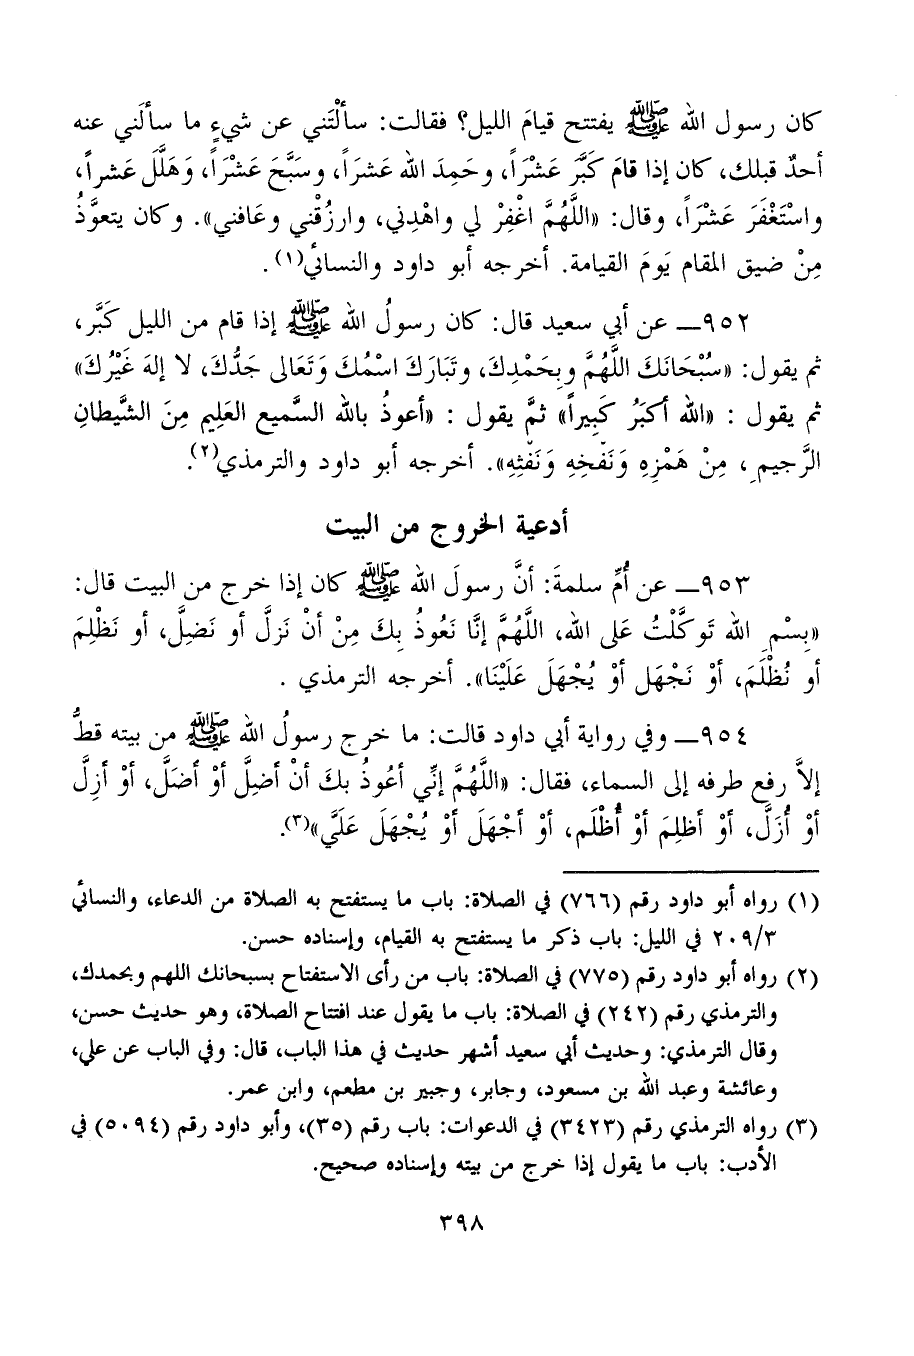 كان رسول الله ﷺ يفتتح قيامَ الليل؟ فقالت: سألْتَني عن شيءٍ ما سألَني عنه
أحدٌ قبلك، كان إذا قامَ كَبَّرَ عَشْرَاً، وحَمِدَ الله عَشرَاً، وسَبَّحَ عَشْرَاً، وَهَلَّلَ عَشراً،
واسْتَغْفَرَ عَشْرَاً، وقال: «اللَّهُمَّ اغْفِرْ لي واهْدِني، وارزُقْني وعَافني». وكان يتعوَّذُ
مِنْ ضيق المقام يَومَ القيامة. أخرجه أبو داود والنسائي(١).
٩٥٢ــ عن أبي سعيد قال: كان رسولُ الله ﷺ إذا قام من الليل كَبَّر،
ثم يقول: «سُبْحَانَكَ اللَّهُمَّ وبِحَمْدِكَ، وتَبَارَكَ اسْمُكَ وَتَعَالى جَدُّكَ، لا إلهَ غَيْرُكَ»
ثم يقول : «الله أكبَرُ كَبِيراً» ثمَّ يقول : «أعوذُ بالله السَّميع العَلِيم مِنَ الشَّيطانِ
الرَّجيمِ، مِنْ هَمْزِهِ وَنَفْخِهِ وَنَفْثِهِ». أخرجه أبو داود والترمذي(٢).
أدعية الخروج من البيت
٩٥٣ــ عن أُمِّ سلمةَ: أنَّ رسولَ الله ﷺ كان إذا خرج من البيت قال:
«بِسْمِ الله تَوكَّلْتُ عَلى الله، اللَّهُمَّ إنَّا نَعُوذُ بِكَ مِنْ أنْ نَزلَّ أو نَضِلَّ، أو نَظْلِمَ
أو نُظْلَمَ، أوْ نَجْهَل أوْ يُجْهَلَ عَلَيْنَا». أخرجه الترمذي .
٩٥٤ــ وفي رواية أبي داود قالت: ما خرج رسولُ الله ﷺ من بيته قطُّ
إلاَّ رفع طرفه إلى السماء، فقال: «اللَّهُمَّ إنِّي أعُوذُ بكَ أنْ أضِلَّ أوْ أضَلَّ، أوْ أزِلَّ
أوْ أُزَلَّ، أوْ أظلِمَ أوْ أُظْلَم، أوْ أجْهَلَ أوْ يُجْهَلَ عَلَيَّ»(٣).
(١) رواه أبو داود رقم (٧٦٦) في الصلاة: باب ما يستفتح به الصلاة من الدعاء، والنسائي
٢٠٩/٣ في الليل: باب ذكر ما يستفتح به القيام، وإسناده حسن.
(٢) رواه أبو داود رقم (٧٧٥) في الصلاة: باب من رأى الاستفتاح بسبحانك اللهم وبحمدك،
والترمذي رقم (٢٤٢) في الصلاة: باب ما يقول عند افتتاح الصلاة، وهو حديث حسن،
وقال الترمذي: وحديث أبي سعيد أشهر حديث في هذا الباب، قال: وفي الباب عن علي،
وعائشة وعبد الله بن مسعود، وجابر، وجبير بن مطعم، وابن عمر.
(٣) رواه الترمذي رقم (٣٤٢٣) في الدعوات: باب رقم (٣٥)، وأبو داود رقم (٥٠٩٤) في
الأدب: باب ما يقول إذا خرج من بيته وإسناده صحيح.
٣٩٨